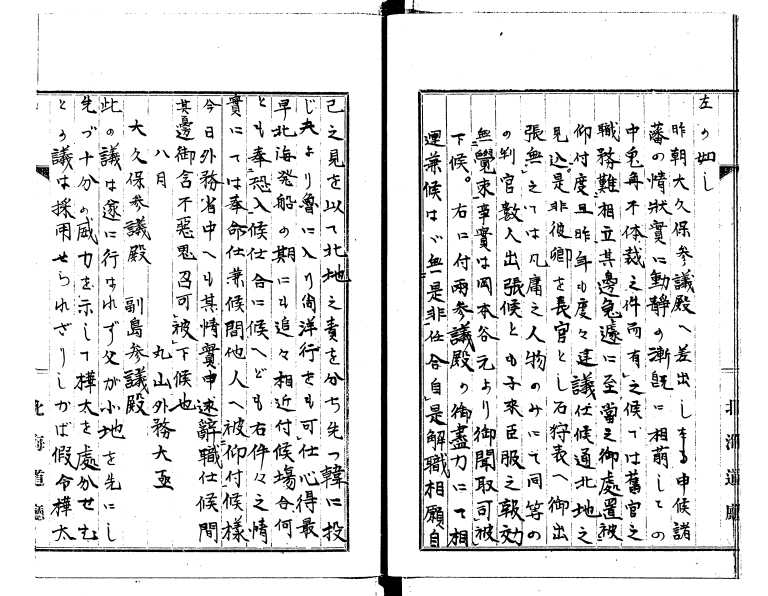 左の如し
昨朝大久保參議殿へ差出しまる申候諸
藩の情狀實に動静の漸既に相萠しての
中兎角不体裁之件而有之候ては舊官之
職務難相立其邊免遽に至當之御處置被
仰付度且昨年も度々建議仕候通北地之
見込是非彼卿を長官とし石狩表へ御出
張無之ては凡庸之人物のみにて同等の
の判官數人出張候とも子來臣服之報効
無覺束事實は岡本谷元より御聞取可被
下候。右に付兩參議殿の御盡力にて相
運兼候はゞ無是非仕合自是解職相願自
己之見を以て北地之責を分ち先つ韓に投
じ夫より魯に入り尚洋行をも可仕心得最
早北海発船の期にも追々相近付候塲合何
とも奉恐入候仕合に候へども右件々之情
實にては奉命仕兼候間他人へ被仰付候様
今日外務省中へも其情實申速辭職仕候間
其邊御含不惡思召可被下候也
八月 丸山外務大亟
大久保參議殿 副島參議殿
此の議は遂に行はれず父が小地を先にし
先づ十分の威力を示して樺太を處かせむ
との議は採用せられざりしかば假令樺太
北海道廳
北海道廳